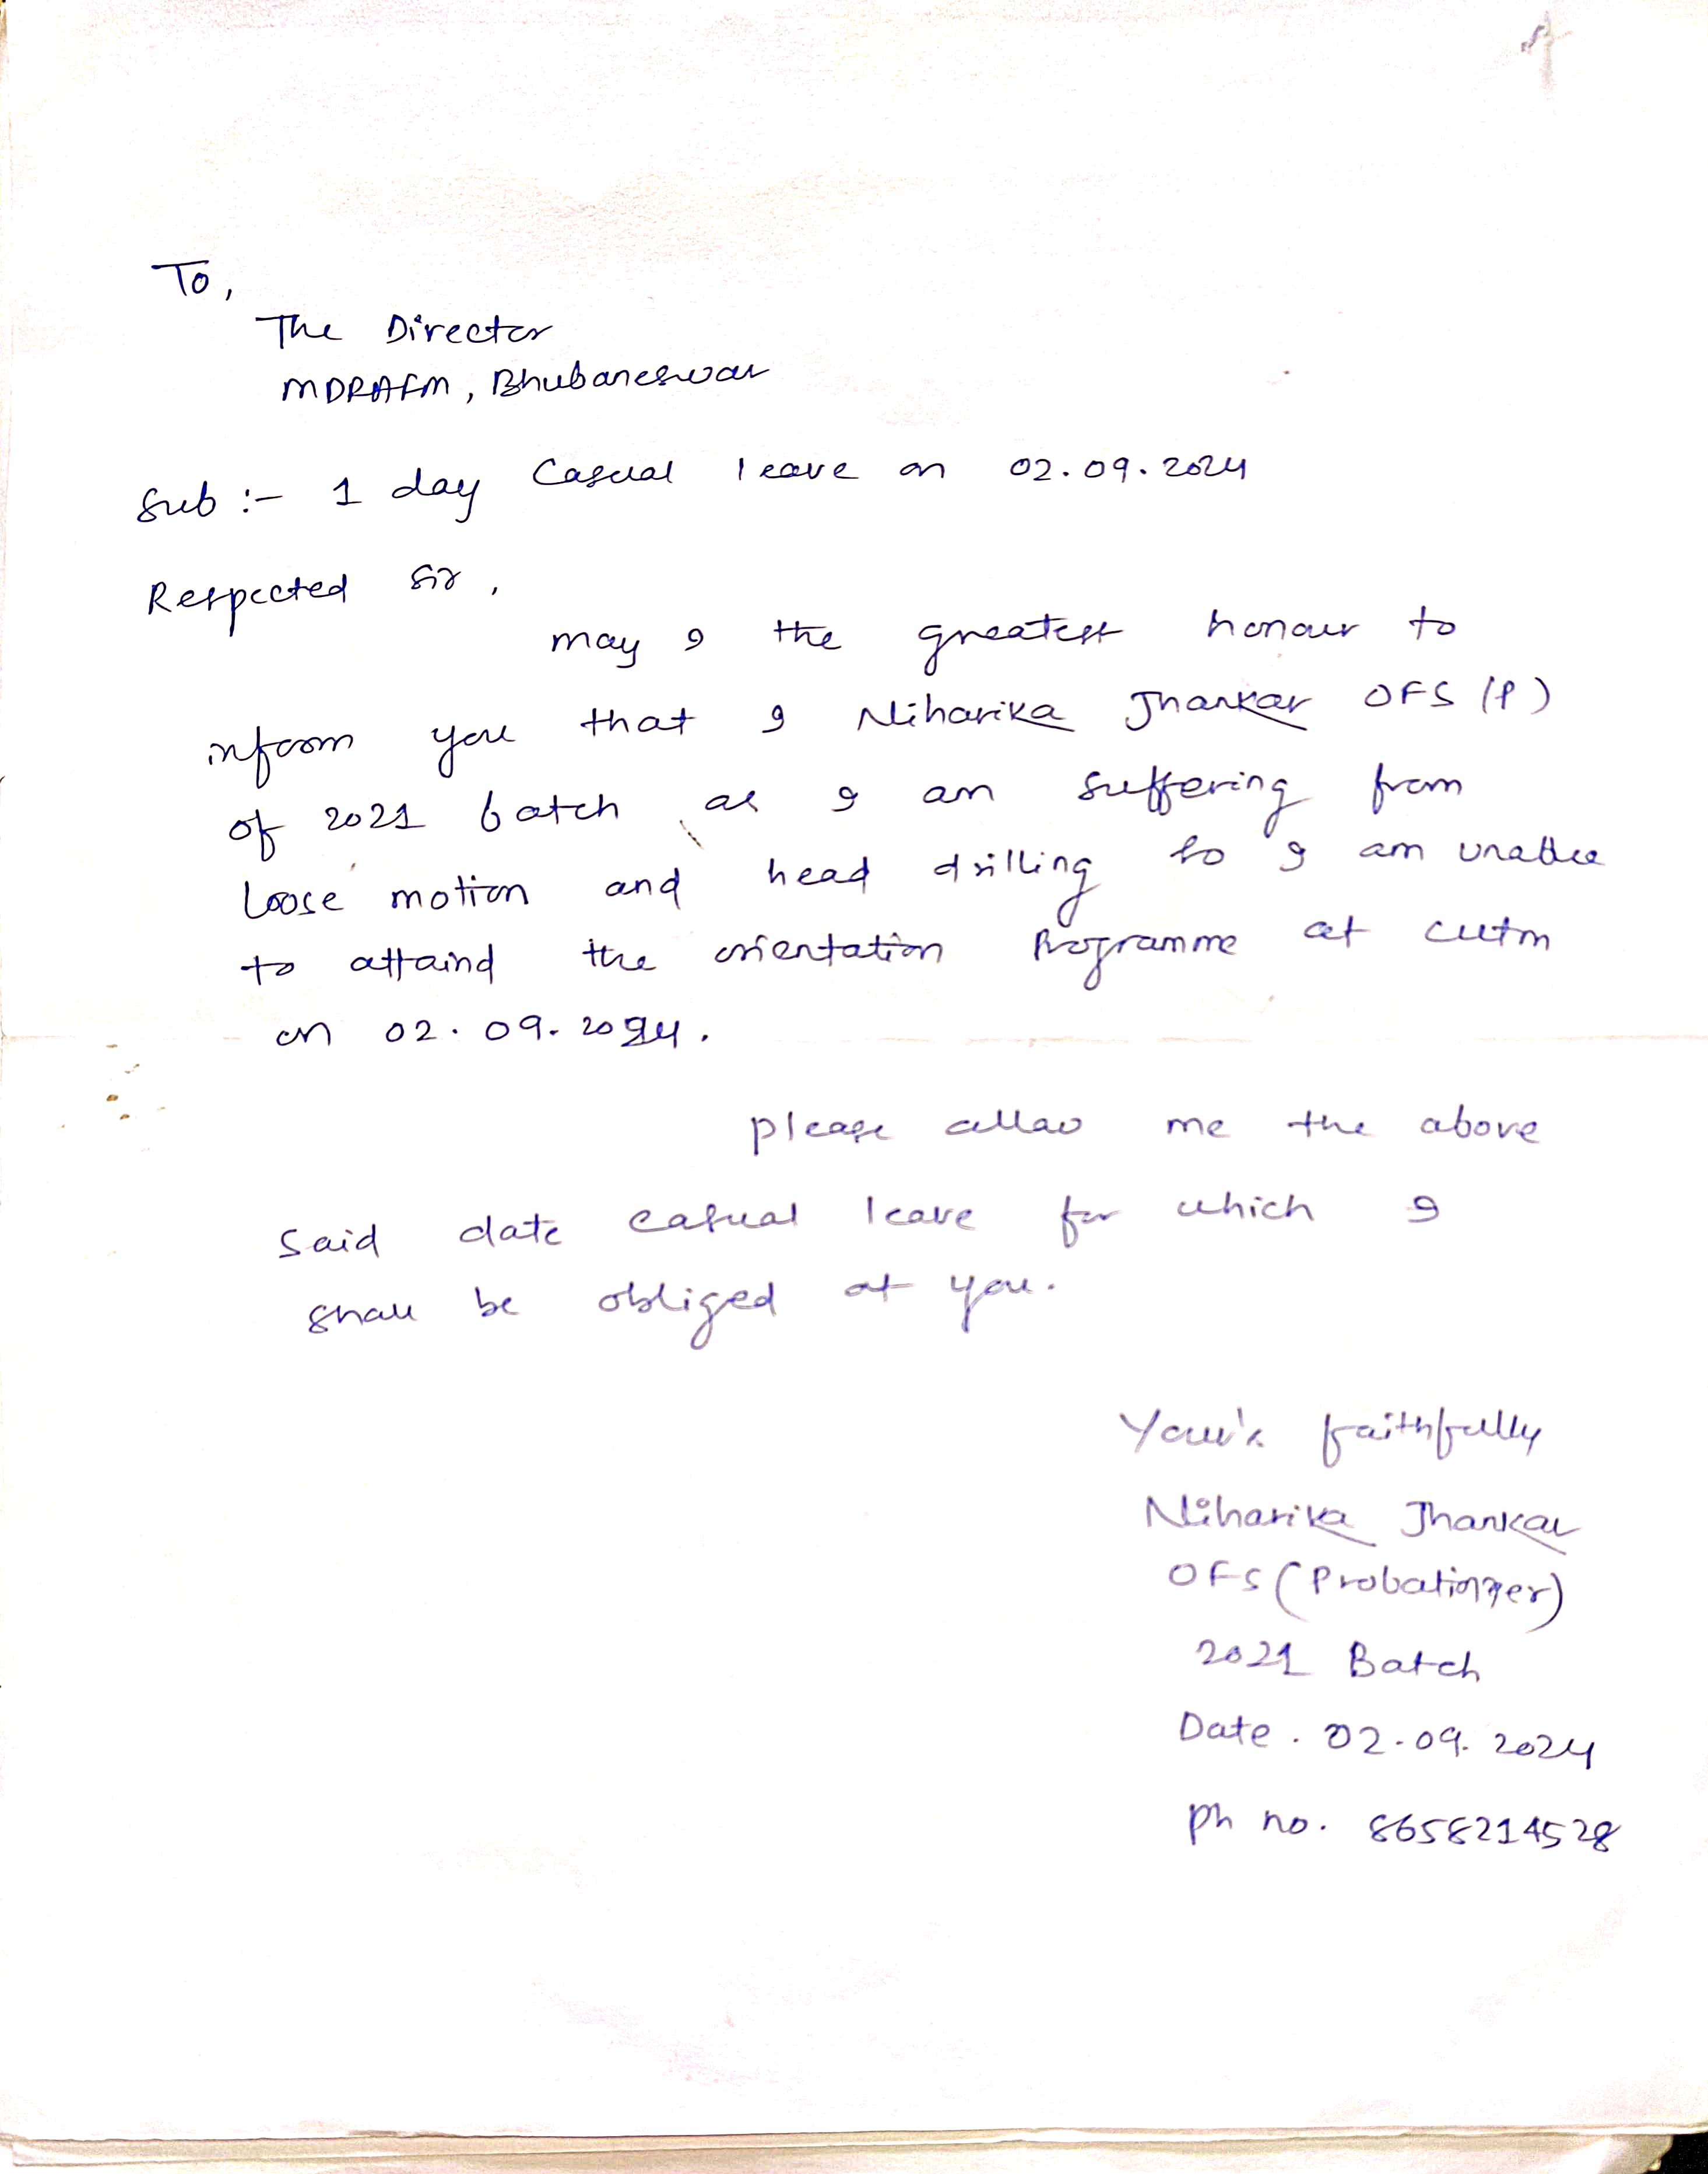 To,
The Director
MDRAFM, Bhubaneswar
Sub :- 1 day Casual leave on 02.09.2024
Respected Sir,
may I the greatest honour to
inform you that I Niharika Jhankar OFS (P)
of 2021 batch, as I am suffering from
Loose motion and head drilling so I am unable
to attaind the orientation Programme at CUTM
on 02.09.2024.
please allow me the above
said date casual leave for which I
shall be obliged at you.
Your's faithfully
Niharika Jhankar
OFS (Probationer)
2021 Batch
Date. 02.09.2024
Ph no. 8658214528